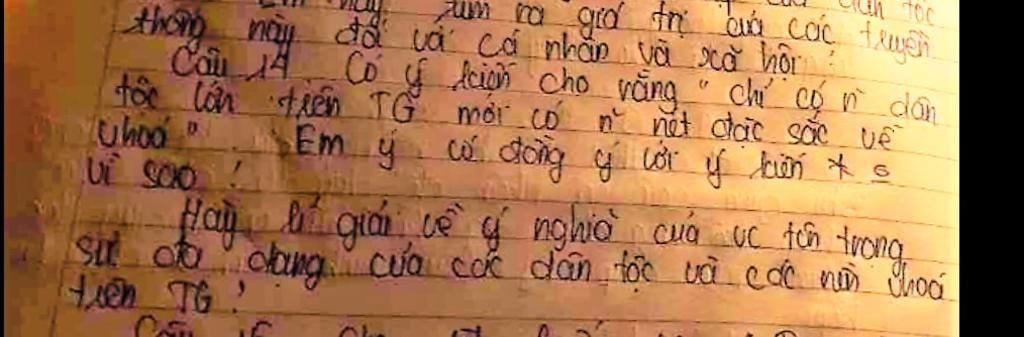 này tìm ra giá trị của các truyền
thống này đối với cá nhân và xã hội?
Câu 14 Có ý kiến cho rằng "chỉ có n~ dân
tộc lớn trên TG mới có n~ nét đặc sắc về
vhoá". Em ý có đồng ý với ý kiến * 0
Vì sao?
Hãy lí giải về ý nghĩa của vc tôn trọng
sự đa dạng của các dân tộc và các nền vhoá
trên TG?
Câu 15